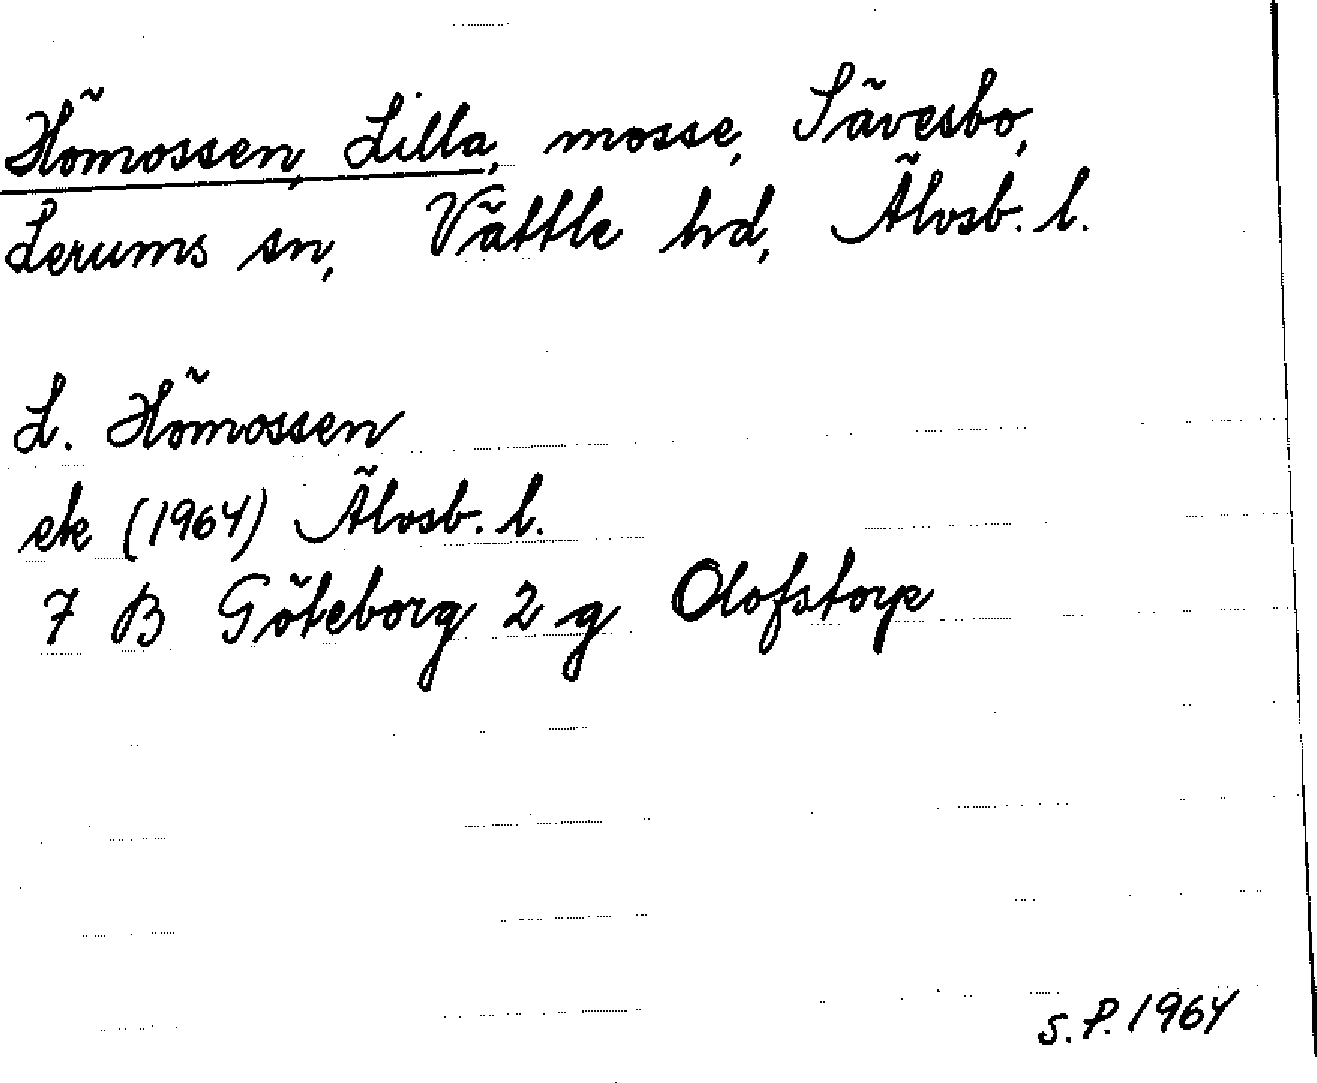 Hömossen, Lilla, mosse, Sävesbo,
Lerums sn, Vättle hd, Älvsb. l.
L. Hömossen
ek (1964) Älvsb. l.
7 B Göteborg 2 g Olofstorp
S.P. 1964